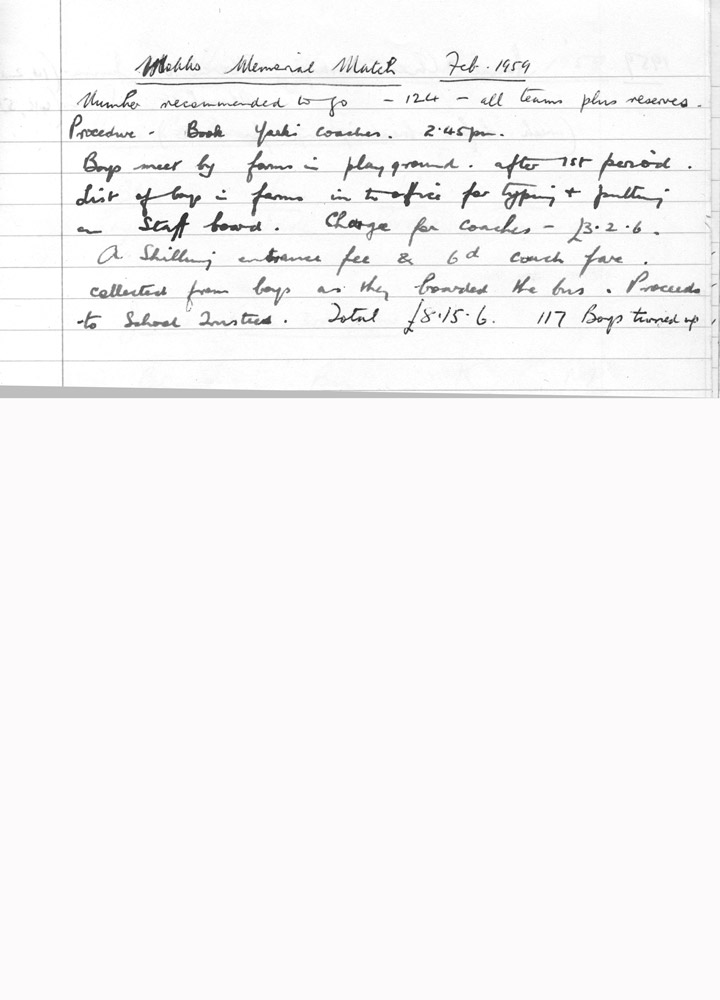 Memorial Match Feb. 1959
Number recommended to go - 124 - all teams plus reserves.
Procedure - Book coaches. 2.45pm.
Boys meet by forms in playground. after 1st period.
List of boys in forms in to office for typing + putting
on Staff board. Charge for coaches - £3.2.6.
A Shilling entrance fee & 6d coach fare.
collected from boys as they boarded the bus. Proceeds
to School Trustees. Total £8.15.6. 117 Boys turned up.